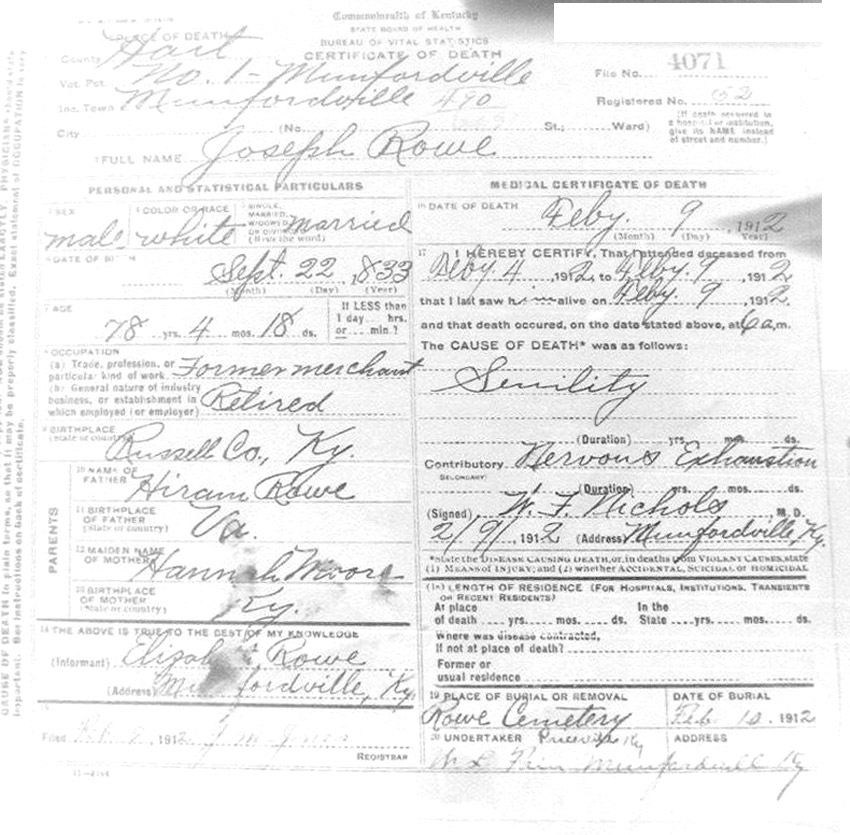 Commonwealth of Kentucky
STATE BOARD OF HEALTH
BUREAU OF VITAL STATISTICS
CERTIFICATE OF DEATH
PLACE OF DEATH
County Hart
Vot. Pct. No. 1 - Munfordville
Inc. Town Munfordville 490
City (No. St.; Ward)
File No. 4071
Registered No.
(If death occurred in a hospital or institution, give its NAME instead of street and number.)
FULL NAME Joseph Rowe
PERSONAL AND STATISTICAL PARTICULARS
SEX male
COLOR OR RACE white
SINGLE, MARRIED, WIDOWED OR DIVORCED (Write the word) married
DATE OF BIRTH
Sept. 22, 1833
(Month) (Day) (Year)
AGE
78 yrs. 4 mos. 18 ds.
If LESS than 1 day... hrs. or... min.?
OCCUPATION
(a) Trade, profession, or particular kind of work. Former merchant
(b) General nature of industry business, or establishment in which employed (or employer) Retired
BIRTHPLACE (State or country) Russell Co., Ky.
PARENTS
10 NAME OF FATHER Hiram Rowe
11 BIRTHPLACE OF FATHER (State or country) Va.
12 MAIDEN NAME OF MOTHER Hannah Moore
13 BIRTHPLACE OF MOTHER (State or country) Ky.
14 THE ABOVE IS TRUE TO THE BEST OF MY KNOWLEDGE
(Informant) Elizabeth Rowe
(Address) Munfordville, Ky.
Filed 1912
REGISTRAR
MEDICAL CERTIFICATE OF DEATH
16 DATE OF DEATH Feby. 9, 1912
(Month) (Day) Year)
17 I HEREBY CERTIFY, That I attended deceased from
Feby. 4, 1912, to Feby. 9, 1912
that I last saw him alive on Feby. 9, 1912.
and that death occured, on the date stated above, at 6 a.m.
The CAUSE OF DEATH* was as follows:
Senility
(Duration) yrs. mos. ds.
Contributory Nervous Exhaustion
SECONDARY)
(Duration) yrs. mos. ds.
(Signed) W. F. Nichols, M. D.
2/9/, 1912 (Address) Munfordville, Ky.
*State the DISEASE CAUSING DEATH, or, in deaths from VIOLENT CAUSES, state
(1) MEANS OF INJURY; and (2) whether ACCIDENTAL, SUICIDAL or HOMICIDAL
LENGTH OF RESIDENCE (FOR HOSPITALS, INSTITUTIONS, TRANSIENTS
OR RECENT RESIDENTS)
At place of death .... yrs..... mos.... ds. In the State .... yrs..... mos.... ds.
Where was disease contracted,
If not at place of death?
Former or
usual residence
19 PLACE OF BURIAL OR REMOVAL
Rowe Cemetery
DATE OF BURIAL
Feb. 10, 1912
20 UNDERTAKER
ADDRESS
Munfordville Ky